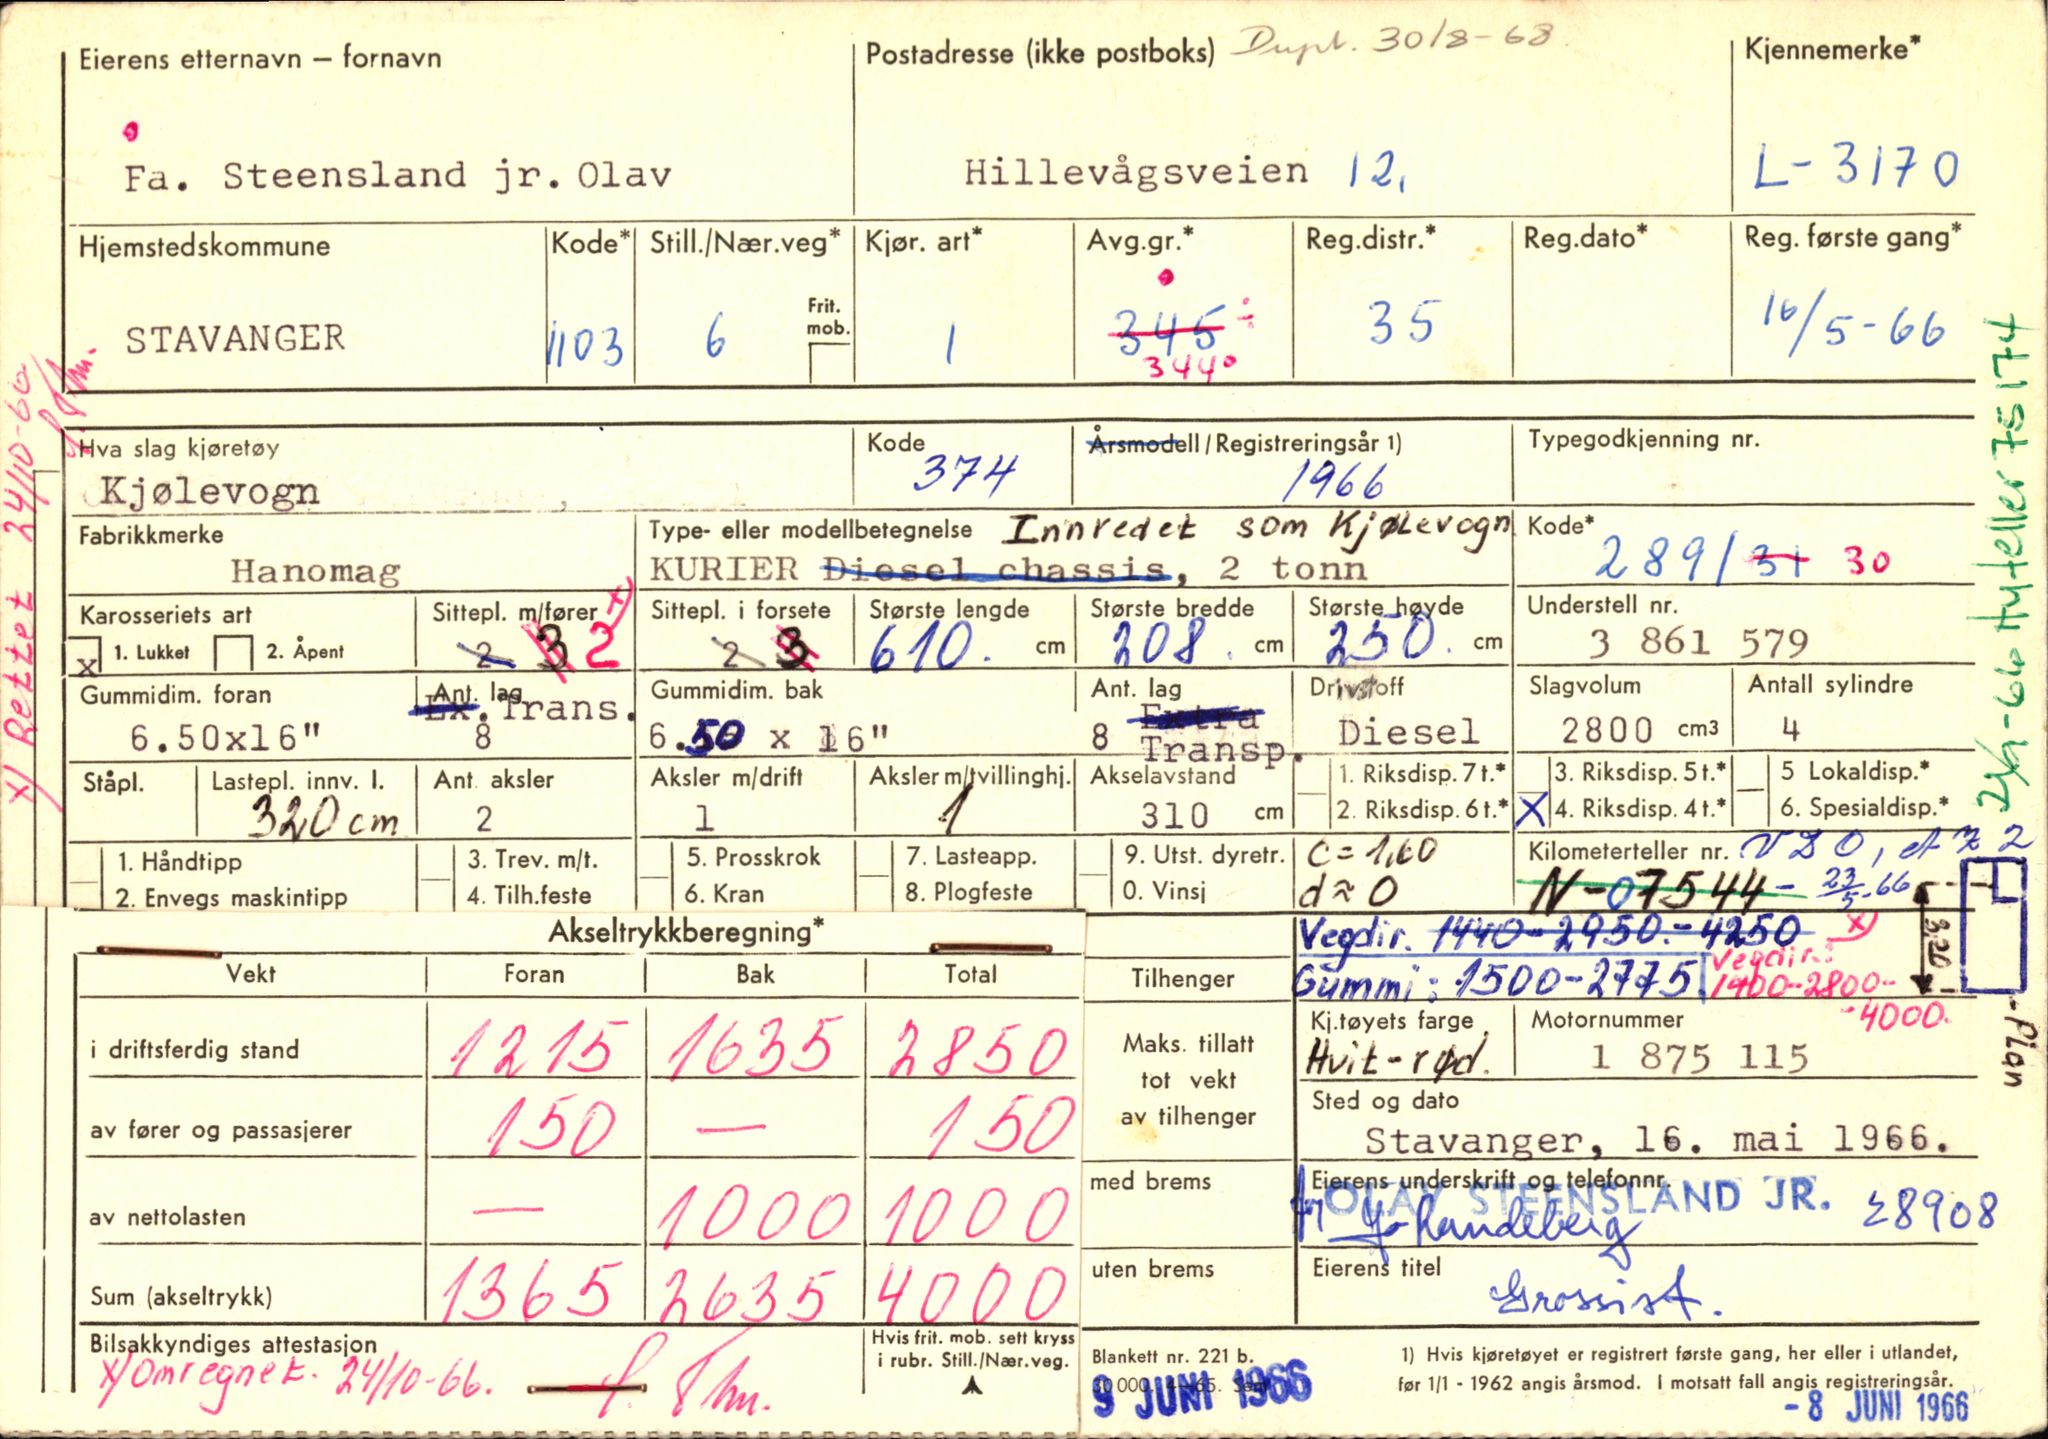 Eierens etternavn – fornavn
Postadresse (ikke postboks) Dupl. 30/8-68
Kjennemerke*
Fa. Steensland jr. Olav
Hillevågsveien 12,
L-3170
Hjemstedskommune
Kode*
Still./Nær.veg*
Kjør. art*
Avg.gr.*
Reg.distr.*
Reg.dato*
Reg. første gang*
STAVANGER
1103
6
Frit. mob.
1
345
344
35
16/5-66
Hva slag kjøretøy
Kode
Årsmodell/Registreringsår 1)
Typegodkjenning nr.
Kjølevogn
374
1966
Fabrikkmerke
Type- eller modellbetegnelse Innredet som Kjølevogn
Kode*
Hanomag
KURIER Diesel chassis, 2 tonn
289/31 30
Karosseriets art
Sittepl. m/fører x)
Sittepl. i forsete
Største lengde
Største bredde
Største høyde
Understell nr.
x 1. Lukket 2. Åpent
2 3 2
2 3
610. cm
208. cm
250. cm
3 861 579
Gummidim. foran
Ant. lag
Gummidim. bak
Ant. lag
Drivstoff
Slagvolum
Antall sylindre
6.50x16"
Ex. Trans.
8
6.50 x 16"
8 Extra
Transp.
Diesel
2800 cm3
4
Ståpl.
Lastepl. innv. l.
Ant. aksler
Aksler m/drift
Aksler m/tvillinghj.
Akselavstand
1. Riksdisp. 7 t.*
3. Riksdisp. 5 t.*
5 Lokaldisp.*
320 cm
2
1
1
310 cm
2. Riksdisp. 6 t.*
X 4. Riksdisp. 4 t.*
6. Spesialdisp.*
1. Håndtipp
3. Trev. m/t.
5. Prosskrok
7. Lasteapp.
9. Utst. dyretr.
c = 1,60
Kilometerteller nr.
2. Envegs maskintipp
4. Tilh.feste
6. Kran
8. Plogfeste
0. Vinsj
d ≈ 0
N-07544 - 23/5-66
Akseltrykkberegning*
Vegdir. 1440-2950.-4250 x)
Vekt
Foran
Bak
Total
Tilhenger
Gummi: 1500-2775.
Vegdir.:
1400-2800-
-4000.
3,20
Plan
i driftsferdig stand
1215
1635
2850
Maks. tillatt
tot vekt
av tilhenger
Kj.tøyets farge
Motornummer
Hvit-rød.
1 875 115
av fører og passasjerer
150
—
150
Sted og dato
Stavanger, 16. mai 1966.
av nettolasten
—
1000
1000
med brems
Eierens underskrift og telefonnr.
OLAV STEENSLAND JR.
28908
Sum (akseltrykk)
1365
2635
4000
uten brems
Eierens titel
Grossist.
Bilsakkyndiges attestasjon
x/ Omregnet. 24/10-66.
Hvis frit. mob. sett kryss
i rubr. Still./Nær.veg.
Blankett nr. 221 b.
9 JUNI 1966
1) Hvis kjøretøyet er registrert første gang, her eller i utlandet,
før 1/1 - 1962 angis årsmod. I motsatt fall angis registreringsår.
- 8 JUNI 1966
x/ Rettet 24/10-66
Hyteller 75174